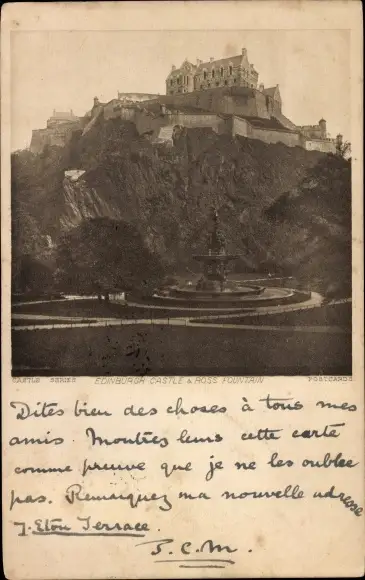 CASTLE SERIES EDINBURGH CASTLE & ROSS FOUNTAIN POSTCARDS
Dites bien des choses à tous mes
amis. Montrez leur cette carte
comme preuve que je ne les oublie
pas. Remarquez ma nouvelle adresse
7. Eton Terrace.
P.C.M.